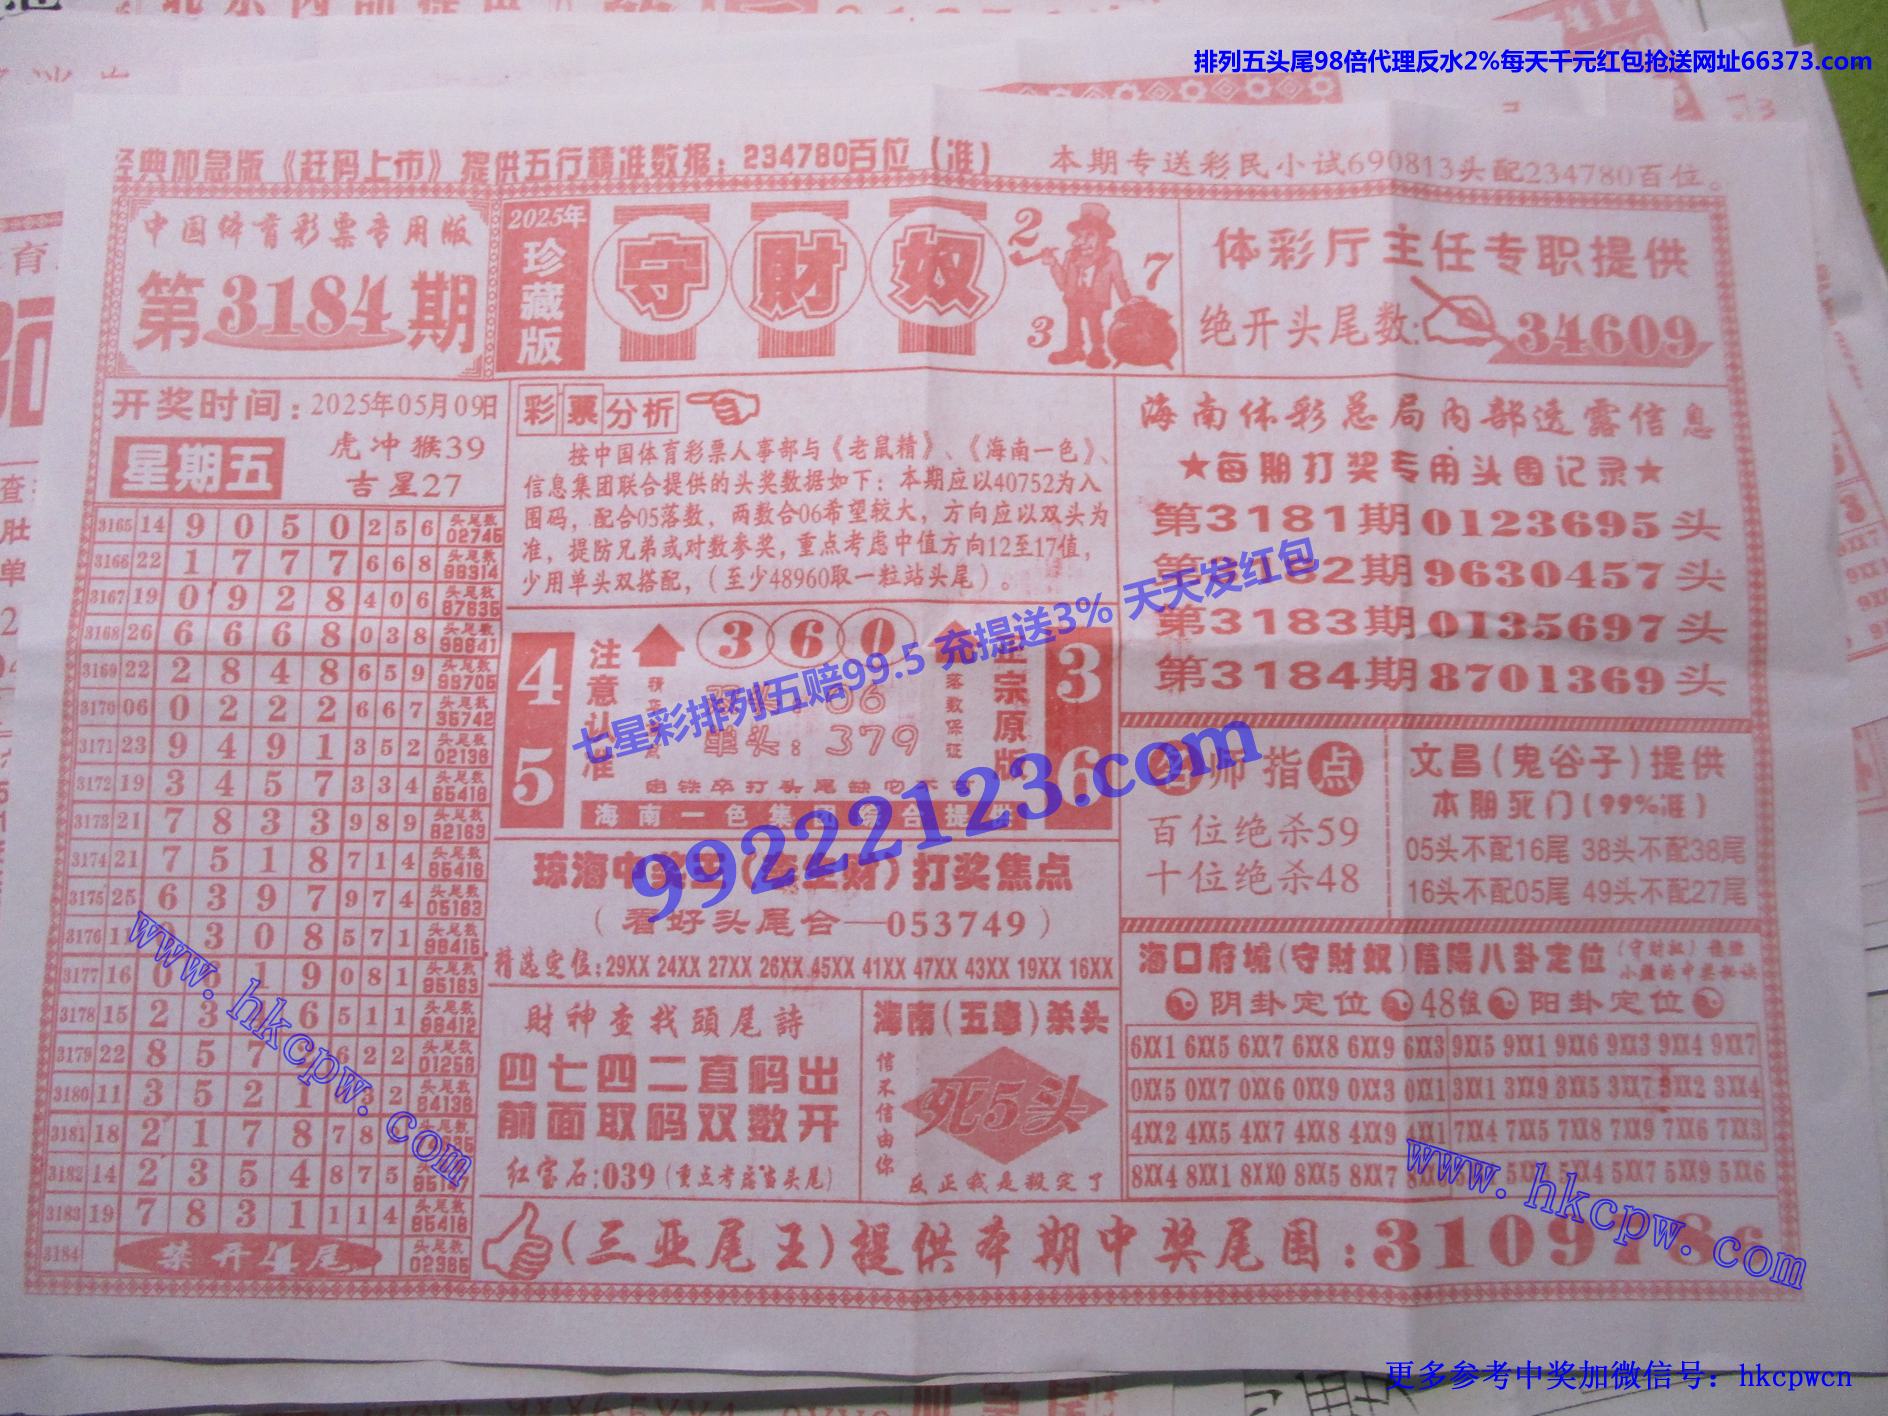 排列五头尾98倍代理反水2%每天千元红包抢送网址66373.com
经典加急版《赶码上市》提供五行精准数据：234780百位（准）
本期专送彩民小试690813头配234780百位。
中国体育彩票专用版
第3184期
2025年
珍藏版
守財奴
2
3
7
体彩厅主任专职提供
绝开头尾数:34609
开奖时间：2025年05月09日
星期五
虎冲猴39
吉星27
3165 14 9 0 5 0 2 5 6 头尾数 02745
3166 22 1 7 7 7 6 6 8 头尾数 98314
3167 19 0 9 2 8 4 0 6 头尾数 87635
3168 26 6 6 6 8 0 3 8 头尾数 98641
3169 22 2 8 4 8 6 5 9 头尾数 98705
3170 06 0 2 2 2 6 6 7 头尾数 35742
3171 23 9 4 9 1 3 5 2 头尾数 02136
3172 19 3 4 5 7 3 3 4 头尾数 85416
3173 21 7 8 3 3 9 8 9 头尾数 82163
3174 21 7 5 1 8 7 1 4 头尾数 85416
3175 25 6 3 9 7 9 7 4 头尾数 05163
3176 11 3 0 8 5 7 1 头尾数 98415
3177 16 0 1 9 0 8 1 头尾数 95163
3178 15 2 3 6 5 1 1 头尾数 98412
3179 22 8 5 7 6 2 2 头尾数 01256
3180 11 3 5 2 1 3 2 头尾数 84136
3181 18 2 1 7 8 7 8 头尾数
3182 14 2 3 5 4 8 7 5 头尾数
3183 19 7 8 3 1 1 1 4 头尾数 85416
3184 禁开4尾 头尾数 02385
彩票分析
按中国体育彩票人事部与《老鼠精》、《海南一色》、
信息集团联合提供的头奖数据如下：本期应以40752为入
围码，配合05落数，两数合06希望较大，方向应以双头为
准，提防兄弟或对数参奖，重点考虑中值方向12至17值，
少用单头双搭配，（至少48960取一粒站头尾）。
4
5
注意认准
360
06
单头：379
落数保证
正宗原版
3
6
海南一色集团综合提供
七星彩排列五赔99.5 充提送3% 天天发红包
99222123.com
打奖焦点
（看好头尾合—053749）
精选定位:29XX 24XX 27XX 26XX 45XX 41XX 47XX 43XX 19XX 16XX
財神查找頭尾詩
四七四二直码出
前面取码双数开
红宝石:039(重点考虑当头尾)
海南(五毒)杀头
信不信由你
死5头
反正我是毅定了
海南体彩总局内部透露信息
★每期打奖专用头围记录★
第3181期0123695头
第3182期9630457头
第3183期0135697头
第3184期8701369头
名师指点
百位绝杀59
十位绝杀48
文昌(鬼谷子)提供
本期死门(99%准)
05头不配16尾 38头不配38尾
16头不配05尾 49头不配27尾
海口府城(守财奴)阴陽八卦定位
阴卦定位 48组 阳卦定位
6XX1 6XX5 6XX7 6XX8 6XX9 6XX3 9XX5 9XX1 9XX6 9XX3 9XX4 9XX7
0XX5 0XX7 0XX6 0XX9 0XX3 0XX1 3XX1 3XX9 3XX5 3XX7 3XX2 3XX4
4XX2 4XX5 4XX7 4XX8 4XX9 4XX1 7XX4 7XX5 7XX8 7XX9 7XX6 7XX3
8XX4 8XX1 8XX0 8XX5 8XX7 5XX4 5XX7 5XX9 5XX6
(三亚尾王)提供本期中奖尾围：3109786
www.hkcpw.com
www.hkcpw.com
更多参考中奖加微信号：hkcpwcn